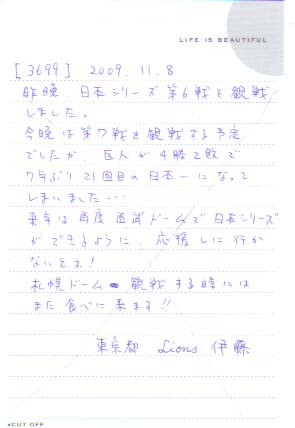 LIFE IS BEAUTIFUL
[3699] 2009.11.8
昨晩、日本シリーズ第6戦を観戦
しました。
今晩は第7戦を観戦する予定
でしたが、巨人が4勝2敗で
7年ぶり21回目の日本一になって
しまいました…
来年は再度西武ドームで日本シリーズ
ができるように、応援しに行か
ないとネ!
札幌ドーム観戦する時には
また食べに来ます!!
東京都 Lions 伊藤
CUT OFF